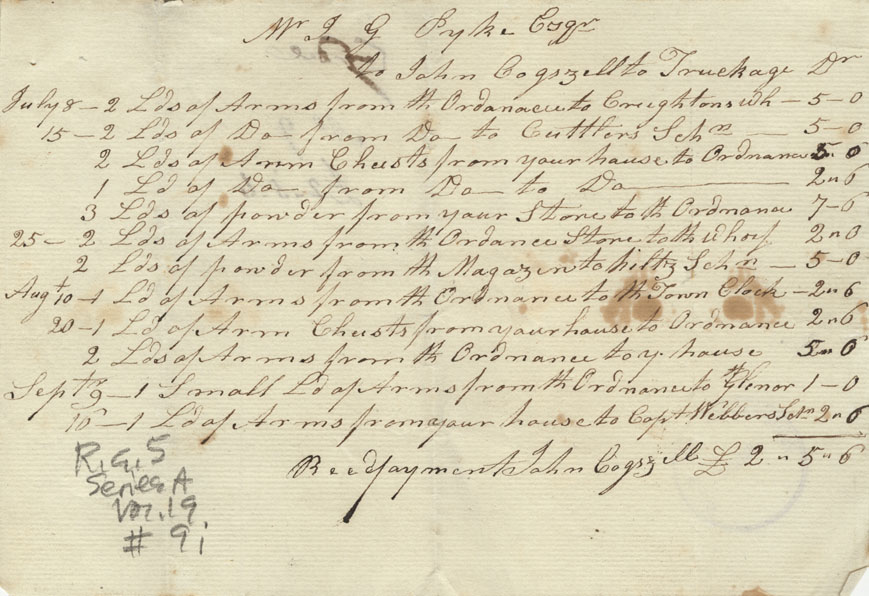 Mr J G Pyke Esqr
to John Cogszell to Truckage Dr
July 8 – 2 Lds of Arms from th Ordanace to Creightons wh – 5 – 0
15 – 2 Lds of Do from Do to Cuttlers Schn — 5 – 0
2 Lds of Arm Chusts from your hause to Ordnance 5 " 0
1 Ld of Do from Do to Do — 2 " 6
3 Lds of powder from your Store to th Ordnance 7 – 6
25 – 2 Lds of Arms from th Ordance Store to th whorf 2 " 0
2 Lds of powder from th Magazen to hiltz Schn — 5 – 0
Augt 10 – 1 Ld of Arms from th Ordnance to th Town Clock – 2 " 6
20 – 1 Ld of Arm Chusts from your hause to Ordnance 2 " 6
2 Lds of Arms from th Ordnance to yr hause 5 " 0
Septr 9 – 1 Small Ld of Arms from th Ordnance to 1 – 0
10 – 1 Ld of Arms from your hause to Capt Webbers Schn 2 " 6
Recd payment John Cogszell £ 2 " 5 " 6
R.G. 5
Series A
Vol. 19
# 9i